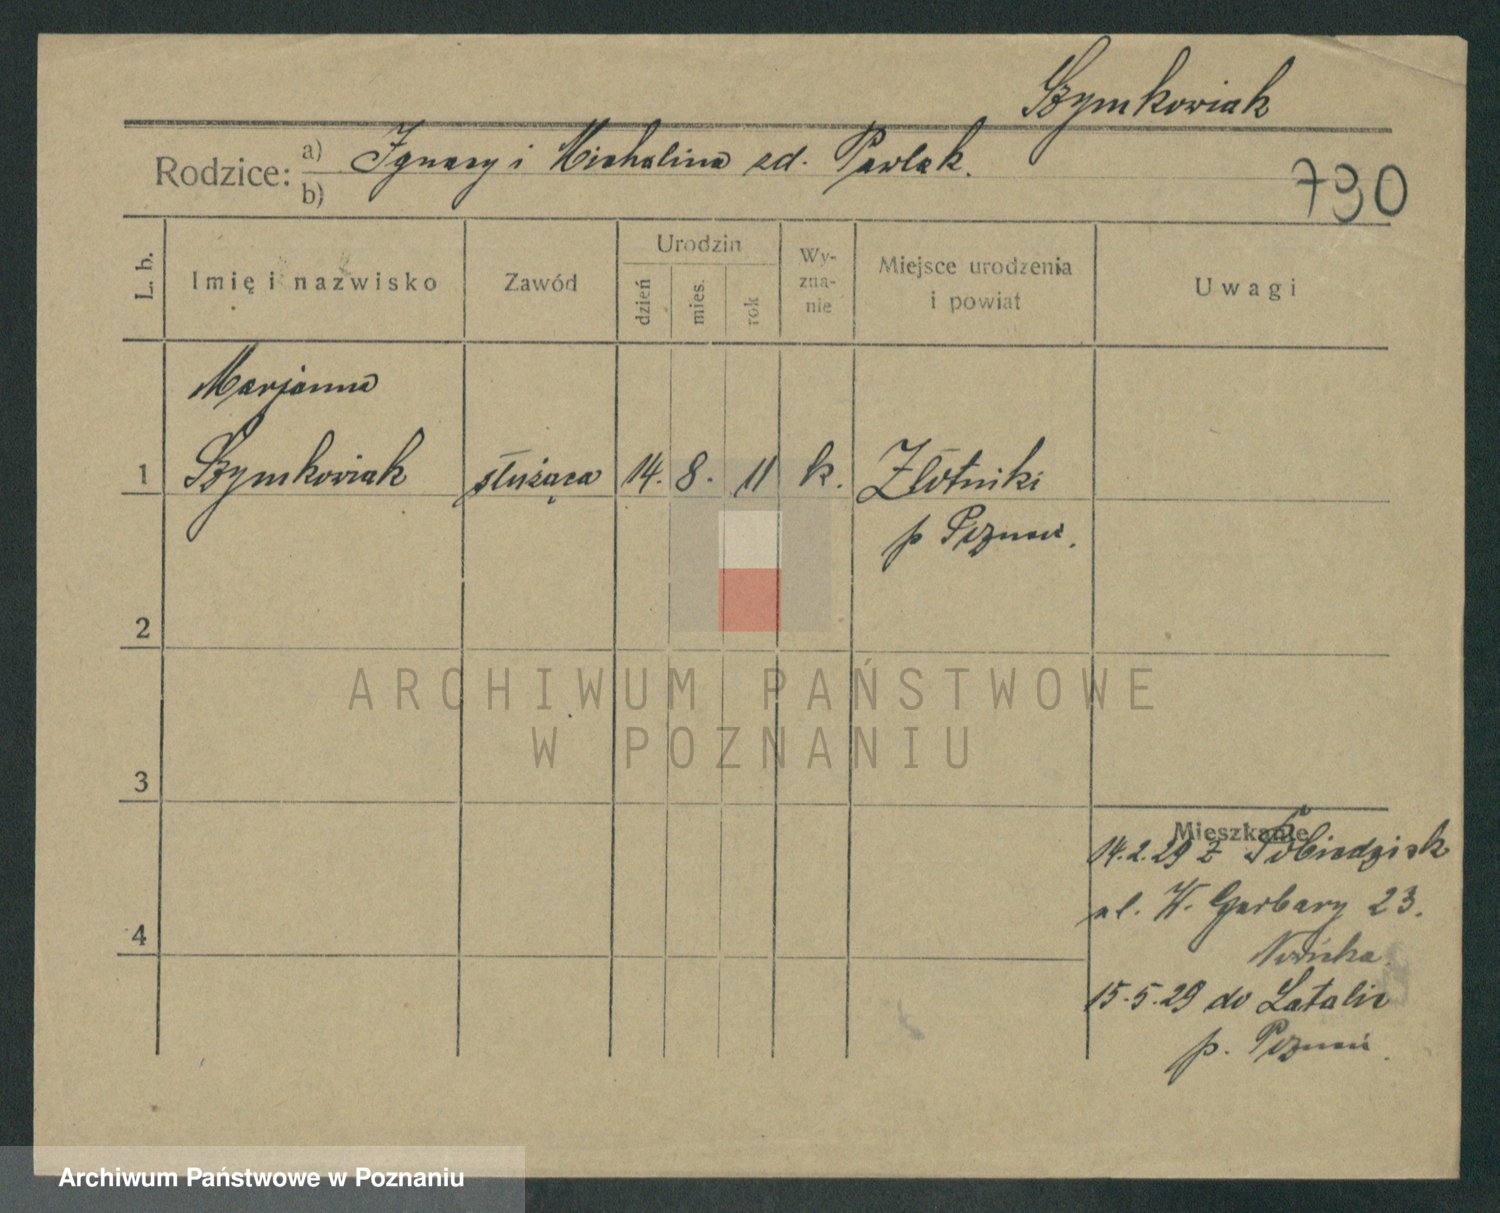 Szymkowiak
Rodzice: a) Ignacy i Michalina zd. Pawlak.
b)
790
L. b.
Imię i nazwisko
Zawód
Urodzin
dzień
mies.
rok
Wy-
zna-
nie
Miejsce urodzenia
i powiat
Uwagi
Marjanna
1 Szymkowiak służąca 14. 8. 11 k. Złotniki
p Poznań.
2
3
4
Mieszkanie
14.2.29 z Pobiedzisk
ul. W. Garbary 23.
15.5.29 do Latalic
p. Poznań.
ARCHIWUM PAŃSTWOWE
W POZNANIU
Archiwum Państwowe w Poznaniu